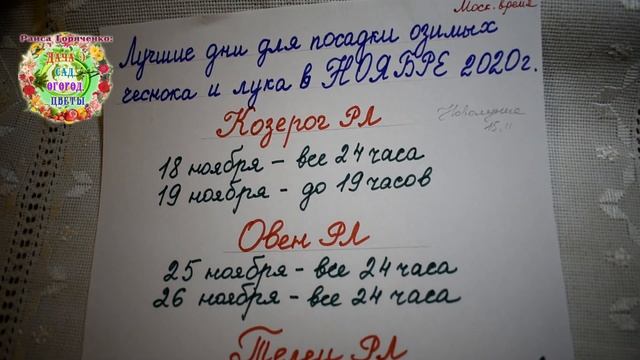 Моск. время
Раиса Горяченко:
ДАЧА
САД
ОГОРОД
ЦВЕТЫ
Лучшие дни для посадки озимых
чеснока и лука в НОЯБРЕ 2020г.
Новолуние
15.11
Козерог РЛ
18 ноября - все 24 часа
19 ноября - до 19 часов
Овен РЛ
25 ноября - все 24 часа
26 ноября - все 24 часа
Телец РЛ